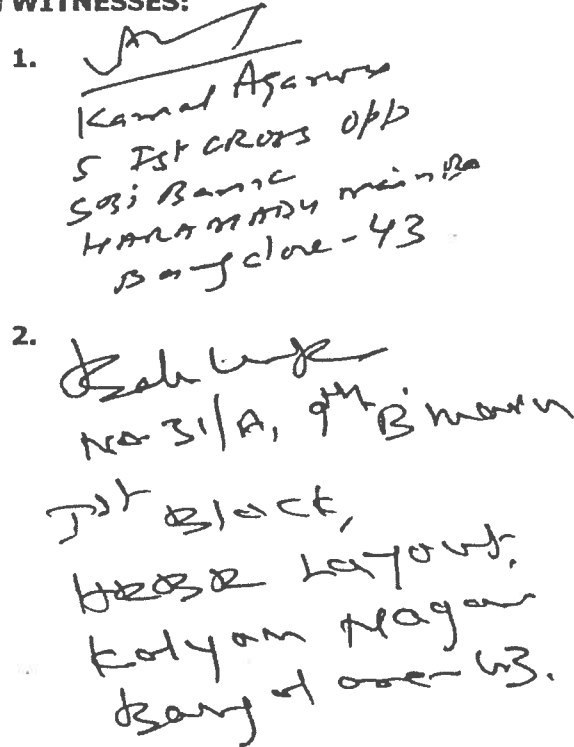 WITNESSES:
1.
Kamal Agarwal
5 Ist CROSS opp
SBi Bank
HARAMADU main Rd
Bangalore-43
2.
No 31/A, 9th 'B' main
Ist Block,
HRBR Layout,
Kalyan Nagar
Bangalore-43.